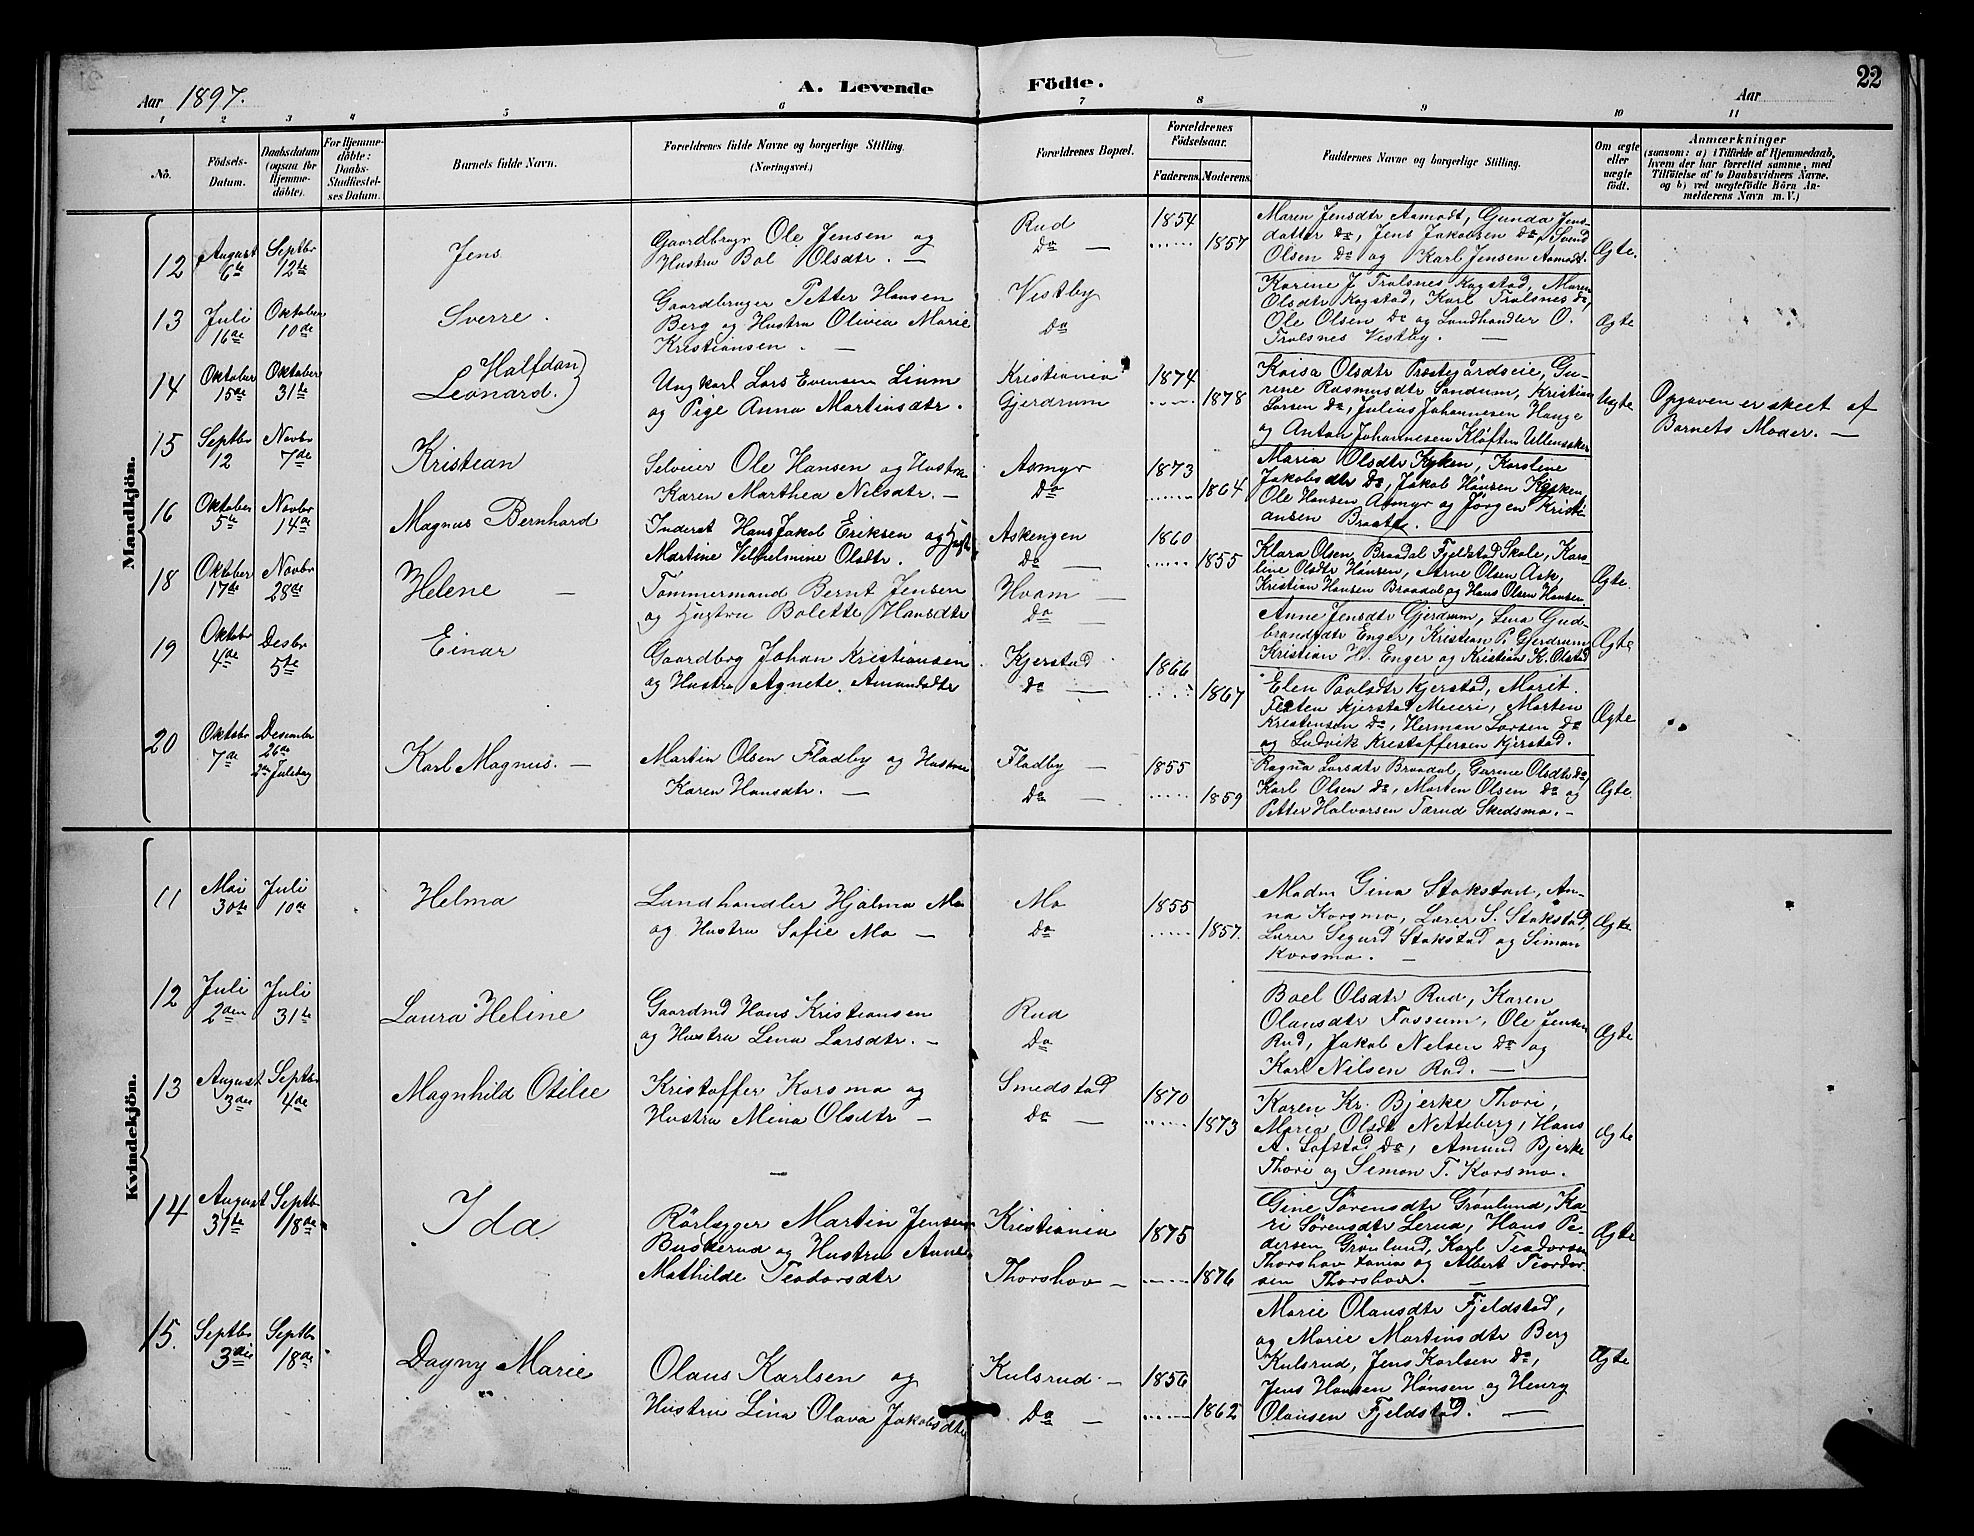 Aar 1897. A. Levende Födte. Aar 22
1 2 3 4 5 6 7 8 9 10 11
No. Födsels-Datum. Daabsdatum (ogsaa for Hjemme-döbte). For Hjemme-döbte: Daabs-Stadfæstel-ses Datum. Barnets fulde Navn. Forældrenes fulde Navne og borgerlige Stilling. (Næringsvei.) Forældrenes Bopæl. Forældrenes Födselsaar. Faderens. Moderens. Faddernes Navne og borgerlige Stilling. Om ægte eller uægte födt. Anmærkninger (saasom: a) i Tilfælde af Hjemmedaab, hvem der har forrettet samme, med Tilföielse af to Daabsvidners Navne, og b) ved uægtefödte Börn An-melderens Navn m. V.)
Mandkjön.
12 August 6te Septbr 12te Jens Gaardbrugr Ole Jensen og Hustru Bol Olsdtr. — Rud Do — 1854 1857
Maren Jensdtr Aamodt, Gunda Jens
datter Do, Jens Jakobsen Do, Svend
Olsen Do og Karl Jensen Aamodt. Ægte.
13 Juli 16de Oktober 10de Sverre. Gaardbruger Petter Hansen
Berg og Hustru Olivia Marie
Kristiansen. — Vestby Do
Karine J. Trolsnes Kogstad, Maren
Olsdtr Kogstad, Karl Trolsnes Do,
Ole Olsen Do og Landhandler O.
Trolsnes Vestby. — Ægte
14 Oktober 15de Oktober 31te Halfdan
Leonard.) Ungkarl Lars Evensen Lium
og Pige Anna Martinsdtr. Kristiania Gjerdrum 1874 1878
Kaisa Olsdtr Præstegårdseie, Gu-
rine Rasmusdtr Sandum, Kristian
Larsen Do, Julius Johannesen Hauge
og Anton Johannesen Kløften Ullensaker Uægte Opgaven er skeet af
Barnets Moder. —
15 Septbr 12 Novbr 7de Kristian Selveier Ole Hansen og Hustru
Karen Marthea Nilsdtr. — Asmyr Do 1873 1864
Maria Olsdtr Kyken, Karoline
Jakobsdtr Do, Jakob Hansen Kyken
Ole Hansen Asmyr og Jørgen Kristi-
ansen Braate.
16 Oktober 5te Novbr 14de Magnus Bernhard Inderst Hans Jakob Eriksen og Hust
Martine Vilhelmine Olsdtr. Askengen Do — 1860 1855
Klara Olsen, Braadal Fjeldstad Skole, Kar-
line Olsdtr Hansen, Arne Olsen Ask,
Kristian Hansen Braadal og Hans Olsen Hansen. Ægte.
18 Oktober 17de Novbr 28de Helene — Tømmermand Bernt Jensen
og Hustru Bolette Hansdtr Hvam — Do —
Anne Jensdtr Gjerdrum, Lina Gud-
brandsdtr Enger, Kristian P. Gjerdrum
Kristian H. Enger og Kristian K. Olstad Ægte
19 Oktobr 4de Desbr 5te Einar Gaardbrg Johan Kristiansen
og Hustru Agnete Amundsdtr Kjerstad Do — 1866 1867
Elen Paulsdtr Kjerstad, Marit
Festen Kjerstad Meieri, Morten
Kristensen Do, Herman Larsen Do
og Ludvik Kristoffersen Kjerstad. Ægte
20 Oktobr 7de Desember 26de 2den Juledag Karl Magnus. — Martin Olsen Fladby og Hustru
Karen Hansdtr. — Fladby — Do — 1855 1859
Ragna Larsdtr Braadal, Gurine Olsdtr Do
Karl Olsen Do, Morten Olsen Do og
Petter Halvorsen Tærud Skedsmo. — Ægte.
Kvindekjön.
11 Mai 30te Juli 10de Helma Landhandler Hjalmar Mo
og Hustru Sofie Mo — Mo Do 1855 1857.
Madm Gina Stokstad, An-
na Korsmo, Lærer S. Stokstad,
Lærer Sigurd Stokstad og Simon
Korsmo. — Ægte
12 Juli 2den Juli 31te Laura Heline Gaardmd Hans Kristiansen
og Hustru Lena Larsdtr. — Rud Do
Boel Olsdtr Rud, Karen
Olausdtr Fossum, Ole Jensen
Rud, Jakob Nelsen Do og
Karl Nilsen Rud. — Ægte
13 August 3die Septbr 4de Magnhild Otilie Kristoffer Korsmo og
Hustru Mina Olsdtr — Smedstad Do — 1870 1873
Karen Kr. Bjerke Thori,
Maria Olsdt Netteberg, Hans
A. Lofstad Do, Amund Bjerke
Thori og Simon T. Korsmo. Ægte
14 August 31te Septbr 18de Ida Rørlægger Martin Jensen
Buskerud og Hustru Anne
Mathilde Teodorsdtr Kristiania Thorshov — 1875 1876
Gine Sørensdtr Grønlund, Ka-
ri Sørensdtr Lerud, Hans Pe-
dersen Grønlund, Karl Teodorsen
Thorshov og Albert Teordor-
sen Thorshov. — Ægte
15. Septbr 3die Septbr 18de Dagny Marie Olaus Karlsen og
Hustru Lina Olava Jakobsdtr Kulsrud — Do — 1856 1862
Marie Olausdtr Fjeldstad,
og Marie Martinsdtr Berg
Kulsrud, Jens Karlsen Do,
Jens Hansen Hansen og Henry
Olausen Fjeldstad. — Ægte